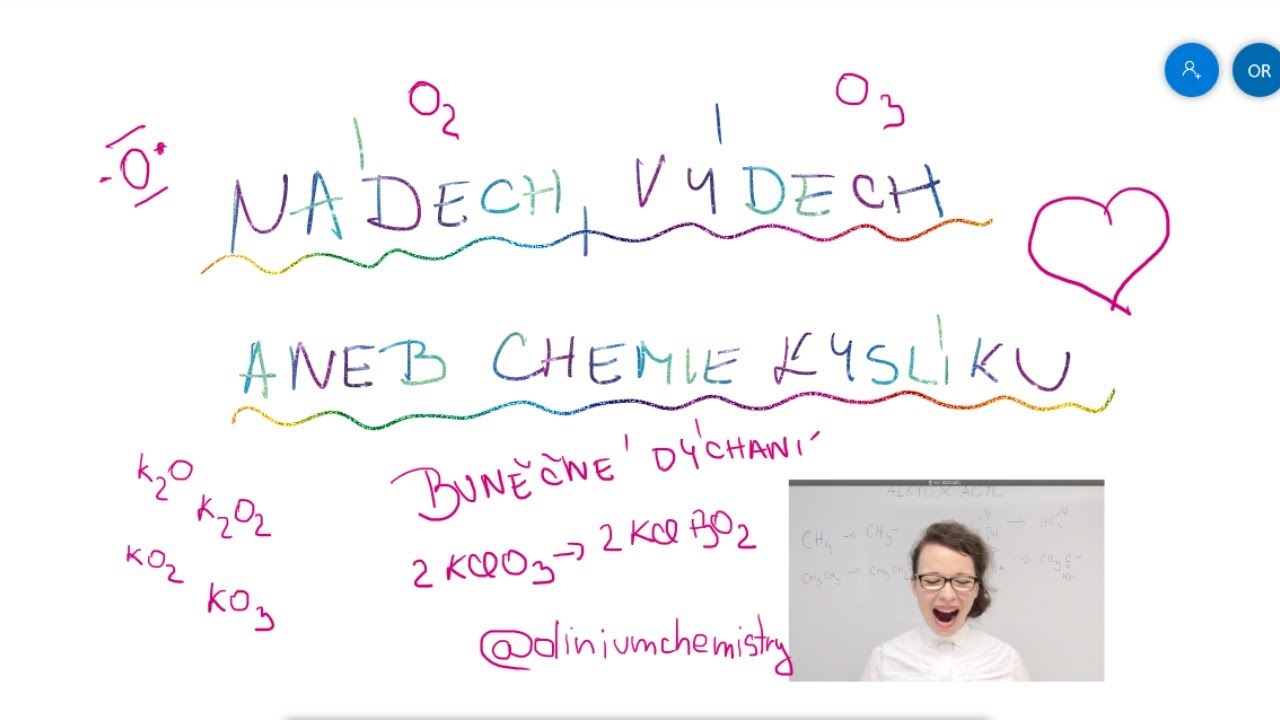 O2
O3
OR
O
NÁDECH, VÝDECH
ANEB CHEMIE KYSLÍKU
K2O
K2O2
KO2
KO3
BUNĚČNÉ DÝCHANÍ
2 KClO3 → 2 KCl + 3O2
@oliniumchemistry
ALKYL X ACYL
CH4 → CH3
CH3CH3 → CH3CH2